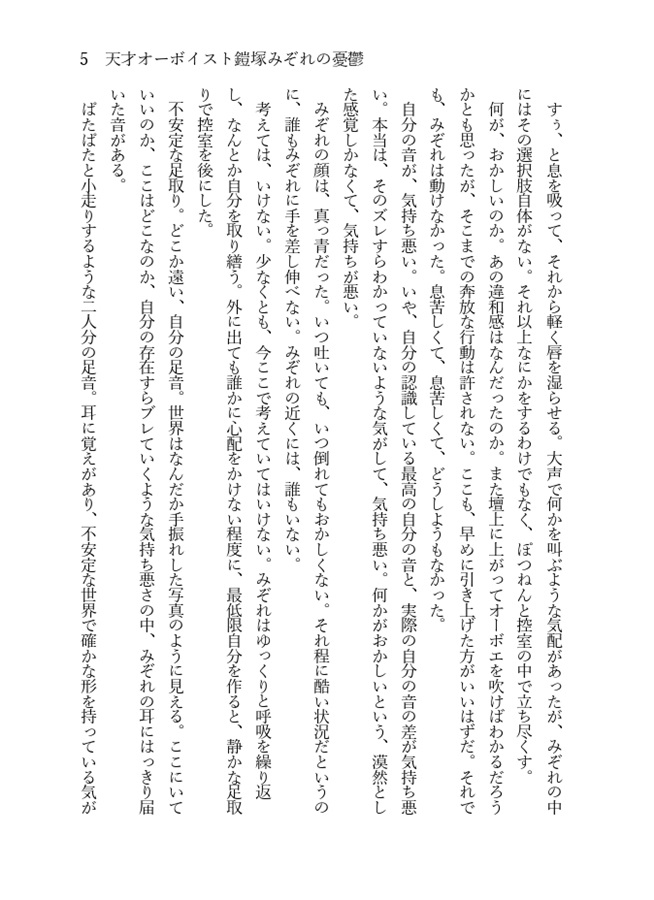 5　天才オーボイスト鎧塚みぞれの憂鬱
　すぅ、と息を吸って、それから軽く唇を湿らせる。大声で何かを叫ぶような気配があったが、みぞれの中
にはその選択肢自体がない。それ以上なにかをするわけでもなく、ぽつねんと控室の中で立ち尽くす。
　何が、おかしいのか。あの違和感はなんだったのか。また壇上に上がってオーボエを吹けばわかるだろう
かとも思ったが、そこまでの奔放な行動は許されない。ここも、早めに引き上げた方がいいはずだ。それで
も、みぞれは動けなかった。息苦しくて、息苦しくて、どうしようもなかった。
　自分の音が、気持ち悪い。いや、自分の認識している最高の自分の音と、実際の自分の音の差が気持ち悪
い。本当は、そのズレすらわかっていないような気がして、気持ち悪い。何かがおかしいという、漠然とし
た感覚しかなくて、気持ちが悪い。
　みぞれの顔は、真っ青だった。いつ吐いても、いつ倒れてもおかしくない。それ程に酷い状況だというの
に、誰もみぞれに手を差し伸べない。みぞれの近くには、誰もいない。
　考えては、いけない。少なくとも、今ここで考えていてはいけない。みぞれはゆっくりと呼吸を繰り返
し、なんとか自分を取り繕う。外に出ても誰かに心配をかけない程度に、最低限自分を作ると、静かな足取
りで控室を後にした。
　不安定な足取り。どこか遠い、自分の足音。世界はなんだか手振れした写真のように見える。ここにいて
いいのか、ここはどこなのか、自分の存在すらブレていくような気持ち悪さの中、みぞれの耳にはっきり届
いた音がある。
　ぱたぱたと小走りするような二人分の足音。耳に覚えがあり、不安定な世界で確かな形を持っている気が